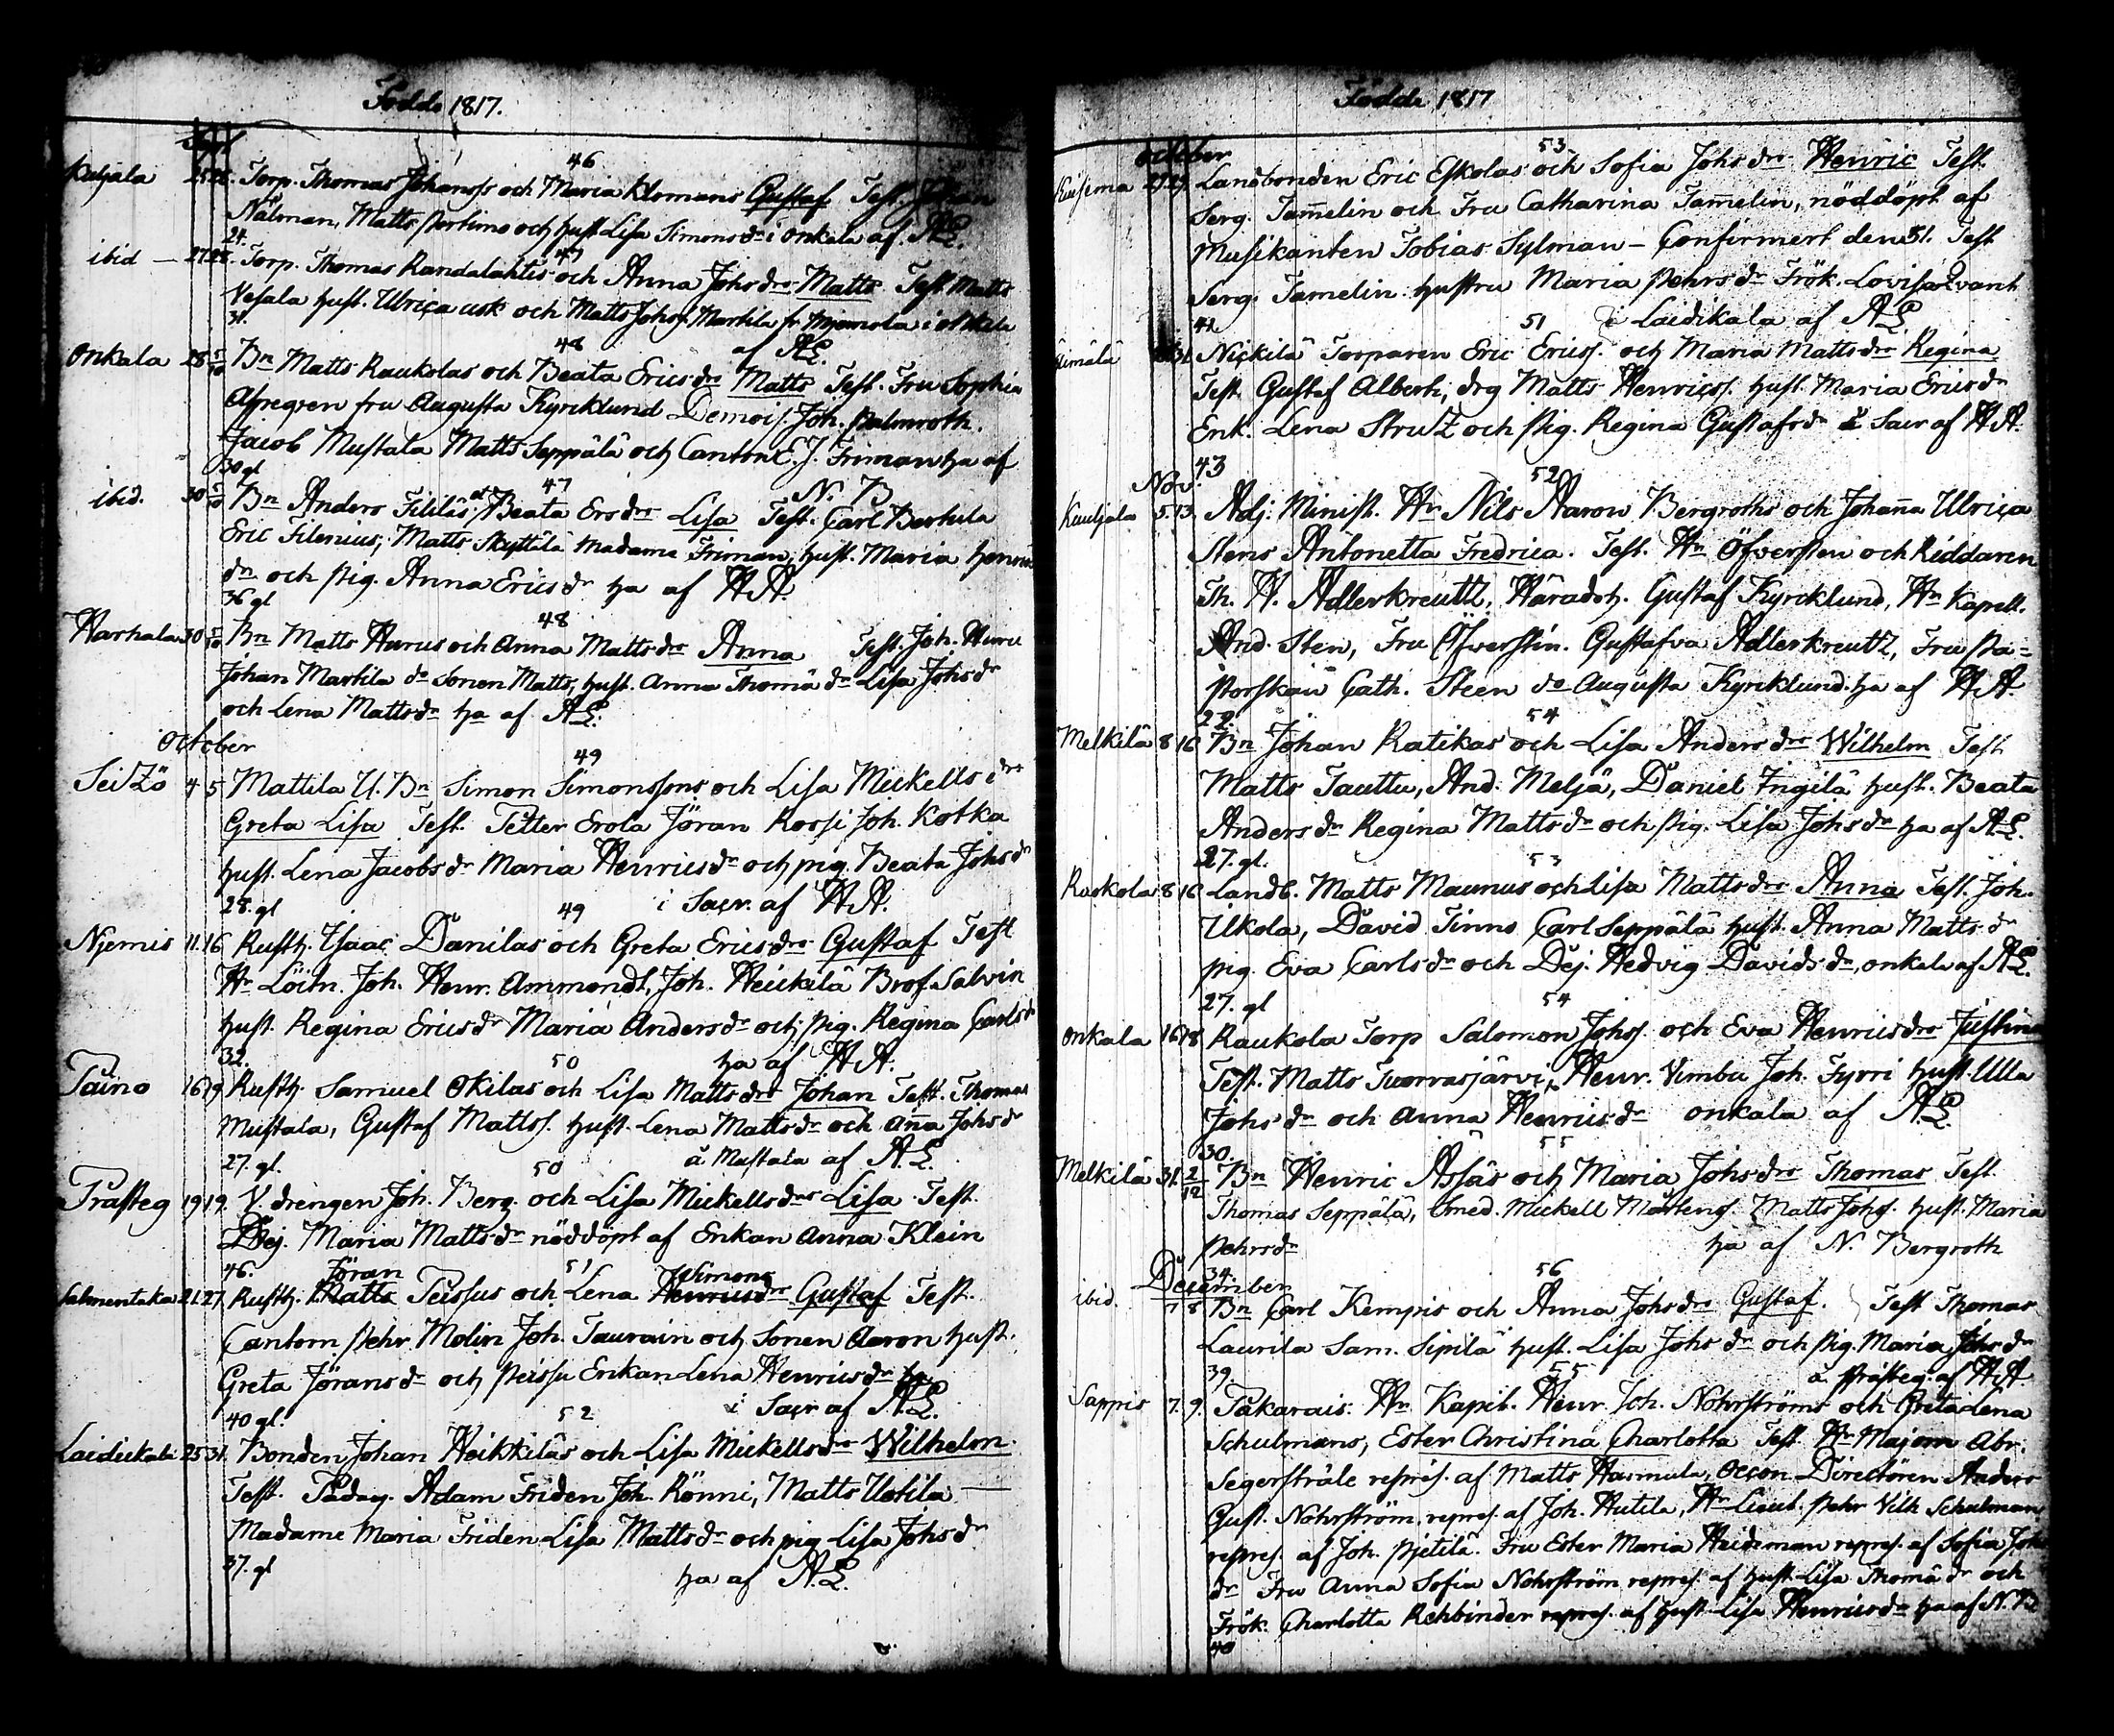 Födde 1817.
Sept
46
Kuljala 25 28. Torp. Thomas Johanss och Maria Klomans Gustaf Test. Johan
Nålman, Matts Portimo och hust. Lisa Simons dr i Onkala af AL.
24. 47
ibid — 27 28. Torp. Thomas Randalahtis och Anna Johs drs Matts Test Matts
Vesala hust. Ulrica usk och Matts Johss. Martila fr
31. 48 af AL.
Onkala 28 5/10 Bn Matts Raukolas och Beata Erics drs Matts Test. Fru Sophia
Agregren fru Augusta Kyrcklund Demois. Joh. Palmroth.
Jacob Mustala Matts Seppälä och Cantorn E. J. Friman ha af
30 gl 47 N. B
ibid. 30 5/10 Bn Anders Fililäs et Beata Ers drs Lisa Test. Carl Bertula
Eric Filenius, Matts Skyttälä Madame Friman, hust. Maria Henrics
dr och pig. Anna Erics dr ha af HA.
36 gl 48
Harhala 30 5/10 Bn Matts Hurus och Anna Matts drs Anna Test. Joh. Huru
Johan Martila do Sonen Matts, hust. Anna Thomä dr Lisa Johs dr
och Lena Matts dr ha af AL.
October
49
Seitzö 4 5 Mattila U. Bn Simon Simonssons och Lisa Mickells drs
Greta Lisa Test. Petter Erola Jöran Rossi Joh. Kotka
hust. Lena Jacobs dr Maria Henrics dr och pig Beata Johs dr
28. gl 49 i Sacr. af HA.
Njemis 11. 16 Rusth. Isaac Danilas och Greta Erics drs Gustaf Test
Hr Löitn. Joh. Henr. Ammondt, Joh. Heickilä Brof. Salvin
hust. Regina Erics dr Maria Anders dr och pig. Regina Carls dr
32. 50 ha af HA.
Taino 16 19 Rusth. Samuel Okilas och Lisa Matts drs Johan Test. Thomas
Mustala, Gustaf Mattss. hust. Lena Matts dr och Ana Johs dr
27. gl. 50 å Mustala af AL.
Prästeg 19 19. V drengen Joh. Berg och Lisa Mickells drs Lisa Test.
Dej. Maria Matts dr nöddöpt af Enkan Anna Klein
46. Jöran 51 Simons
Salmentaka 21 27 Rusth. Matts Teissus och Lena Henrics drs Gustaf Test.
Cantorn Pehr Molin Joh. Taurain och Sonen Aaron hust.
Greta Jörans dr och Peissu Enkan Lena Henrics dr ha
40 gl. 52 i Sacr af AL.
Laidickala 25 31. Bonden Johan Heikkiläs och Lisa Mickells drs Wilhelm
Test. Pädag. Adam Friden Joh. Rönni, Matts Uotila —
Madame Maria Friden Lisa Matts dr och pig Lisa Johs dr
37. gl ha af AL.
Födde 1817
October 53
Kuisema 27 29. Landbonden Eric Eskolas och Sofia Johs drs Henric Test.
Serg. Tam̄elin och Fru Catharina Tam̄elin, nöddöpt af
Musikanten Tobias Sylman – Confirmert den 31. Test
Serg. Tamelin hustru Maria Pehrs dr Frök. Lovisa Qvant
41 51 i Laidikala af AL
31 Nickilä Torparen Eric Ericss. och Maria Matts drs Regina
Test Gustaf Alberti, drg Matts Henricss. hust. Maria Erics dr
Enk. Lena Strutz och Pig. Regina Gustafs dr i Sacr af HA.
43 52
Nov.
Kuuljala 5. 13. Adj. Minist. Hr Nils Aaron Bergroths och Johan̄a Ulrica
Stens Antonetta Fredrica. Test. Hr Öfversten och Riddaren
Th. H. Adlerkreutz, Häradsh. Gustaf Kyrcklund, Hr Kapell.
And. Sten, Fru Öfverstin. Gustafva Adlerkreutz, Fru Pa=
storskan Cath. Steen do Augusta Kyrcklund. ha af HA
22. 54
Melkilä 8 16 Bn Johan Ratikas och Lisa Anders drs Wilhelm Test
Matts Tauttu, And. Melsä, Daniel Ingilä hust. Beata
Anders dr Regina Matts dr och Pig. Lisa Johs dr ha af AL.
27. gl. 53
Raskola 8 16 Landb. Matts Maunus och Lisa Matts drs Anna Test. Joh.
Ilkola, David Tinns Carl Seppälä hust. Anna Matts dr
pig. Eva Carls dr och Dej. Hedvig Davids dr, Onkala af AL.
27. gl 54
Onkala 16 18 Raukola Torp Salomon Johss. och Eva Henrics drs Justina
Test. Matts Tuorvasjärvi, Henr. Vimbu Joh. Fyrri hust. Ulla
Johs dr och Anna Henrics dr Onkala af AL.
30. 55
Melkilä 31. 2/12 Bn Henric Assäs och Maria Johs drs Thomas Test.
Thomas Seppälä, Smed. Mickell Mårtens. Matts Johss. hust. Maria
Pehrs dr ha af N. Bergroth
December
34. 56
ibid. 7 8 Bn Carl Kempis och Anna Johs drs Gustaf. Test Thomas
Laurila Sam. Sipilä hust. Lisa Johs dr och Pig. Maria Johs dr
39. 55 å Prästeg. af HA
Sappis 7. 9. Pakarais. Hr Kapit. Henr. Joh. Nohrströms och Greta Lena
Schulmans, Ester Christina Charlotta Test Hr Majorn Abr.
Segerstråle repres. af Matts Harmula, Oecon Directören Anders
Gust. Nohrström repres. af Joh. Hutila, Hr Lieut. Pehr Vilh Schulman
repres. af Joh. Pietilä. Fru Ester Maria Heideman repres. af Sofia Johs
dr Fru Anna Sofia Nohrström repres. af hust. Lisa Thomä dr och
Frök. Charlotta Rehbinder repres. af hust. Lisa Henrics dr ha af N. B
40